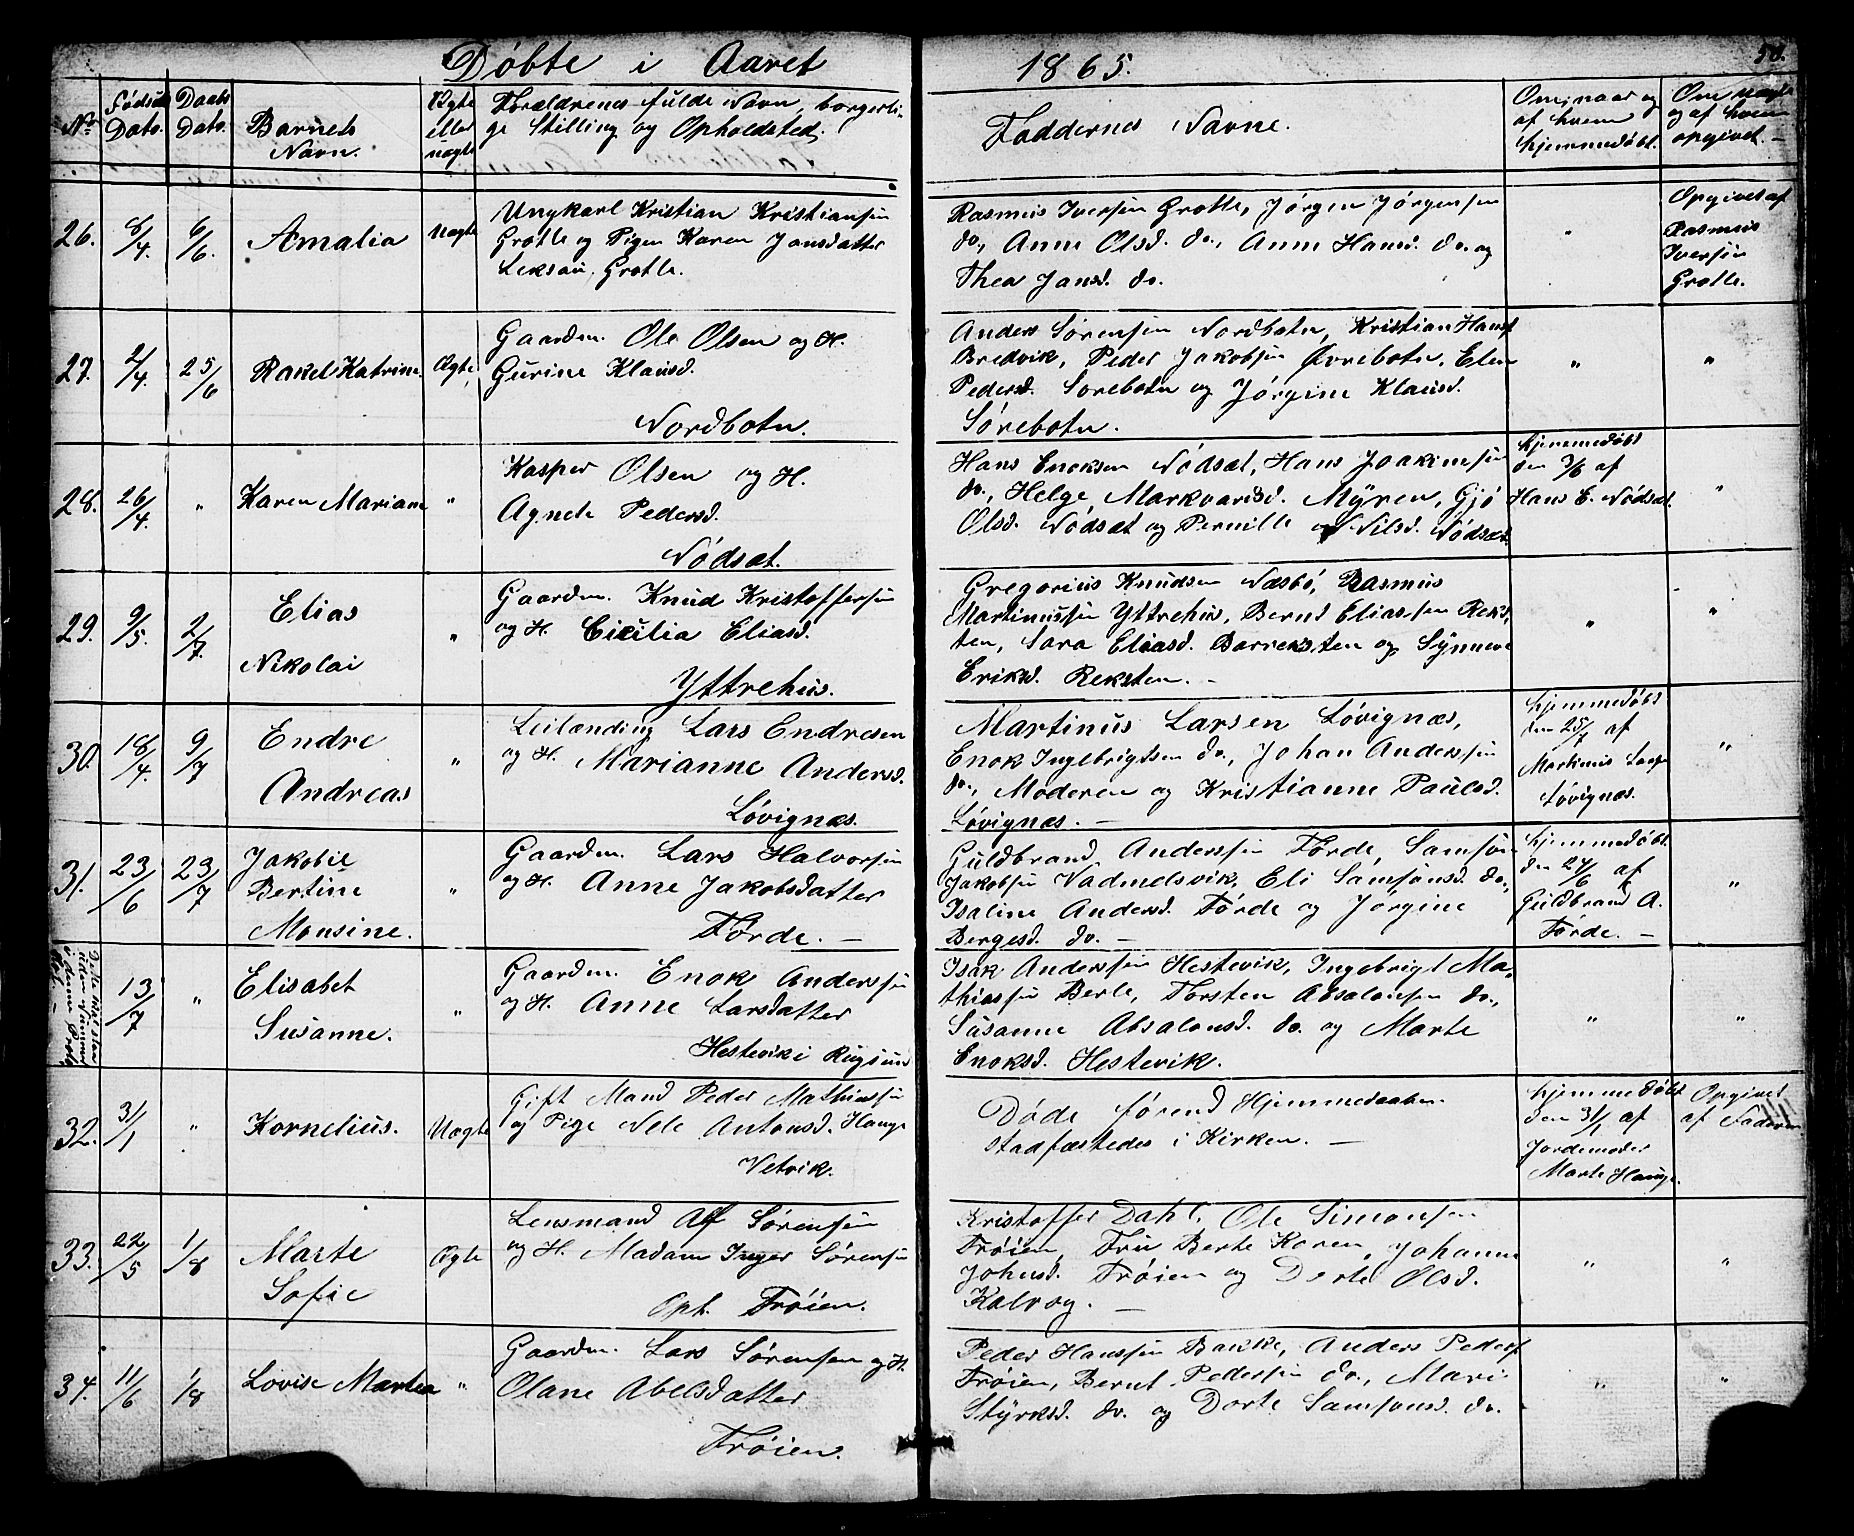 Döbte i Aaret 1865.
50.
No. Födsels Dato. Daabs Dato. Barnets Navn. Ægte eller uægte
Forældrenes fulde Navn, borgerli-
ge Stilling og Opholdsted.
Faddernes Navne.
Om, naar og
af hvem
hjemmedöbt.
Om uægte
og af hvem
opgivet.
26. 8/4. 6/6. Amalia Uægte
Ungkarl Kristian Kristiansen
Grotle og Pigen Karen Jansdatter
Grotle.
Rasmus Iversen Grotle, Jörgen Jörgensen
do., Anne Olsd. do., Anne Hansd. do. og
Thea Jansd. do.
"
Opgivet af
Rasmus
Iversen
Grotle.
27. 2/4. 25/6 Rakel Katrine. Ægte,
Gaardm. Ole Olsen og H.
Gurine Klausd.
Nordbotn.
Anders Sörensen Nordbotn, Kristian Hans
Bredvik, Peder Jakobsen Övrebotn, Elen
Pedersd. Sörebotn og Jörgine Klausd.
Sörebotn.
" "
28. 26/4. " Karen Mariane "
Kasper Olsen og H.
Agnete Pedersd.
Nödsæt.
Hans Enoksen Nödsæt, Hans Joakimsen
do., Helge Markvardsd. Myren, Gjö
Olsd. Nödsæt og Pernille Nilsd. Nödsæt.
hjemmedöbt
den 3/6 af
Hans E. Nödsæt.
"
29. 9/5. 2/7. Elias
Nikolai "
Gaardm. Knud Kristoffersen
og H. Cicilia Eliasd.
Yttrehus.
Gregorius Knudsen Næsbö, Rasmus
Martinussen Yttrehus, Bernt Eliassen Reks,
ten, Sara Eliasd. Barreksten og Synneve
Eriksd. Reksten. -
" "
30. 18/4. 9/7 Endre
Andreas "
Leilænding Lars Endresen
og H. Marianne Andersd.
Lövignæs.
Martinus Larsen Lövignæs,
Enok Ingebrigtsen do., Johan Anderssen
do., Moderen og Kristianne Paulsd.
Lövignæs. -
hjemmedöbt
den 25/4 af
Martinus Larsen
Lövignæs.
"
31. 23/6 23/7 Jakobie
Bertine
Monsine. "
Gaardm. Lars Halvorsen
og H. Anne Jakobsdatter
Förde. -
Guldbrand Anderssen Förde, Samson
Jakobsen Vadmelsvik, Eli Samsonsd. do.,
Isaline Andersd. Förde og Jorgine
Bergesd. do. -
hjemmedöbt
den 24/6 af
Guldbrand A.
Förde. -
"
13/7 " Elisabet
Susanne. "
Gaardm. Enok Anderssen
og H. Anne Larsdatter
Hestevik i Rugsund
Isak Anderssen Hestevik, Ingebrigt Ma-
thiassen Berle, Torsten Absalonsen do.,
Susanne Absalonsd. do. og Marte
Enoksd. Hestevik.
" "
32. 3/1 " Kornelius. Uægte
Gift Mand Peder Mathiassen
og Pige Nele Antonsd. Hauge
Vetvik.
Döde förend Hjemmedaaben
stadfæstedes i Kirken. -
hjemmedöbt
den 31/1 af
Jordemoder
Marte Hauge
Opgivet
af Faderen
33. 22/5 1/8 Marte
Sofie Ægte
Lensmand Alf Sörensen
og H. Madam Inger Sörensen
Oph. Tröien.
Kristoffer Dahl, Ole Simonsen
Tröien, Fru Berte Karen, Johanne
Johnsd. Tröien og Dorte Olsd.
Kalvog. -
" "
34. 11/6 1/8 Lovise Martea "
Gaardm. Lars Sörensen og H.
Olane Abelsdatter
Tröien.
Peder Hanssen Bakke, Anders Peders
Tröien, Bernt Pedersen do., Mari
Styrksd. do. og Dorte Samsonsd. do.
" "